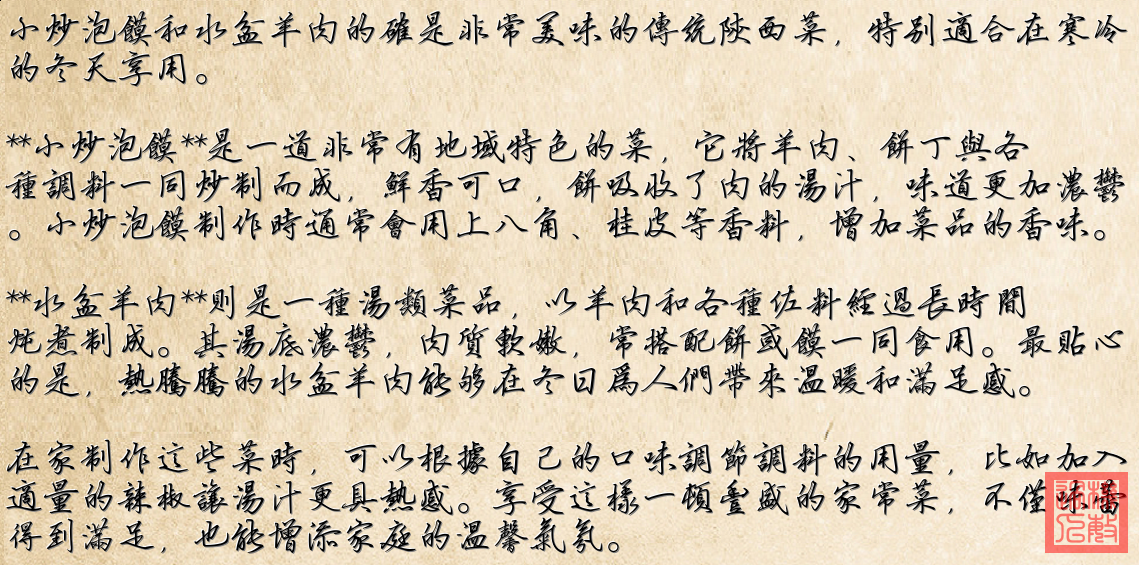 小炒泡饃和水盆羊肉的確是非常美味的傳統陝西菜，特別適合在寒冷
的冬天享用。
**小炒泡饃**是一道非常有地域特色的菜，它將羊肉、餅丁與各
種調料一同炒制而成，鮮香可口，餅吸收了肉的湯汁，味道更加濃鬱
。小炒泡饃制作時通常會用上八角、桂皮等香料，增加菜品的香味。
**水盆羊肉**則是一種湯類菜品，以羊肉和各種佐料經過長時間
炖煮制成。其湯底濃鬱，肉質軟嫩，常搭配餅或饃一同食用。最貼心
的是，熱騰騰的水盆羊肉能够在冬日爲人們帶來温暖和滿足感。
在家制作這些菜時，可以根據自己的口味調節調料的用量，比如加入
適量的辣椒讓湯汁更具熱感。享受這樣一頓豐盛的家常菜，不僅味蕾
得到滿足，也能增添家庭的温馨氣氛。